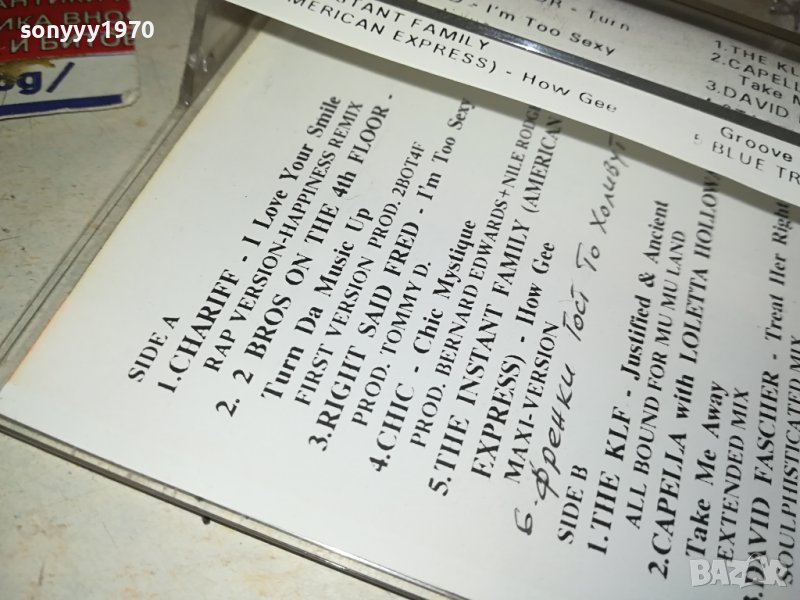 sonyyy1970
АНТИКИ
КА ВНО
И БИТОВ
og/
Turn
I'm Too Sexy
STANT FAMILY
MERICAN EXPRESS) - How Gee
1.THE KL
2.CAPELL
Take M
3.DAVID
Groove
5 BLUE TR
SIDE A
1.CHARIFF - I Love Your Smile
RAP VERSION-HAPPINESS REMIX
2. 2 BROS ON THE 4th FLOOR -
Turn Da Music Up
FIRST VERSION PROD. 2BOT4F
3.RIGHT SAID FRED - I'm Too Sexy
PROD. TOMMY D.
4.CHIC - Chic Mystique
PROD. BERNARD EDWARDS+NILE RODGE
5.THE INSTANT FAMILY (AMERICAN
EXPRESS) - How Gee
MAXI-VERSION
6 - Френки Гост То Холивут
SIDE B
1.THE KLF - Justified & Ancient
ALL BOUND FOR MU MU LAND
2.CAPELLA with LOLETTA HOLLOWA
Take Me Away
EXTENDED MIX
3.DAVID FASCHER - Treat Her Right
SOULPHISTICATED MIX
BAZAR.bg